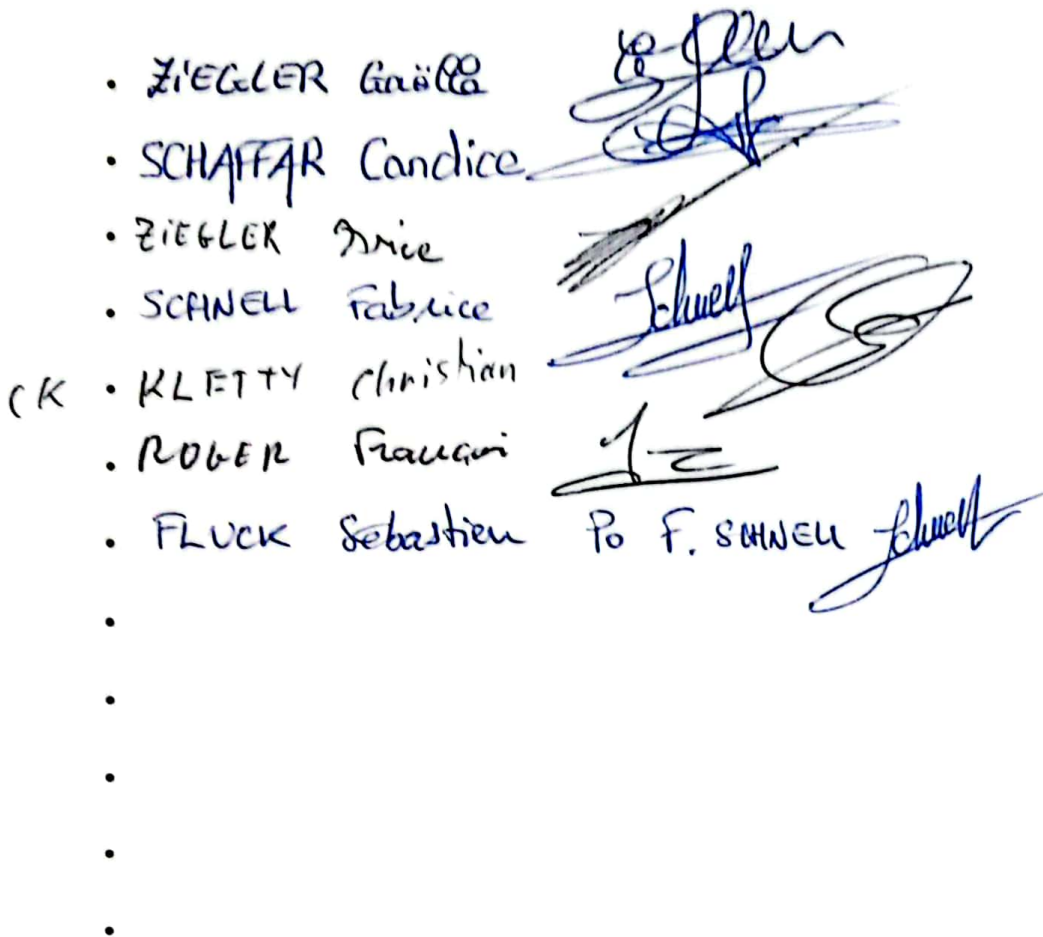 • ZIEGLER Gaëlle
• SCHAFFAR Candice
• ZIEGLER Brice
• SCHNELL Fabrice Schnell
CK • KLETTY Christian
• ROGER François
• FLUCK Sebastien Po F. SCHNELL Schnell
•
•
•
•
•